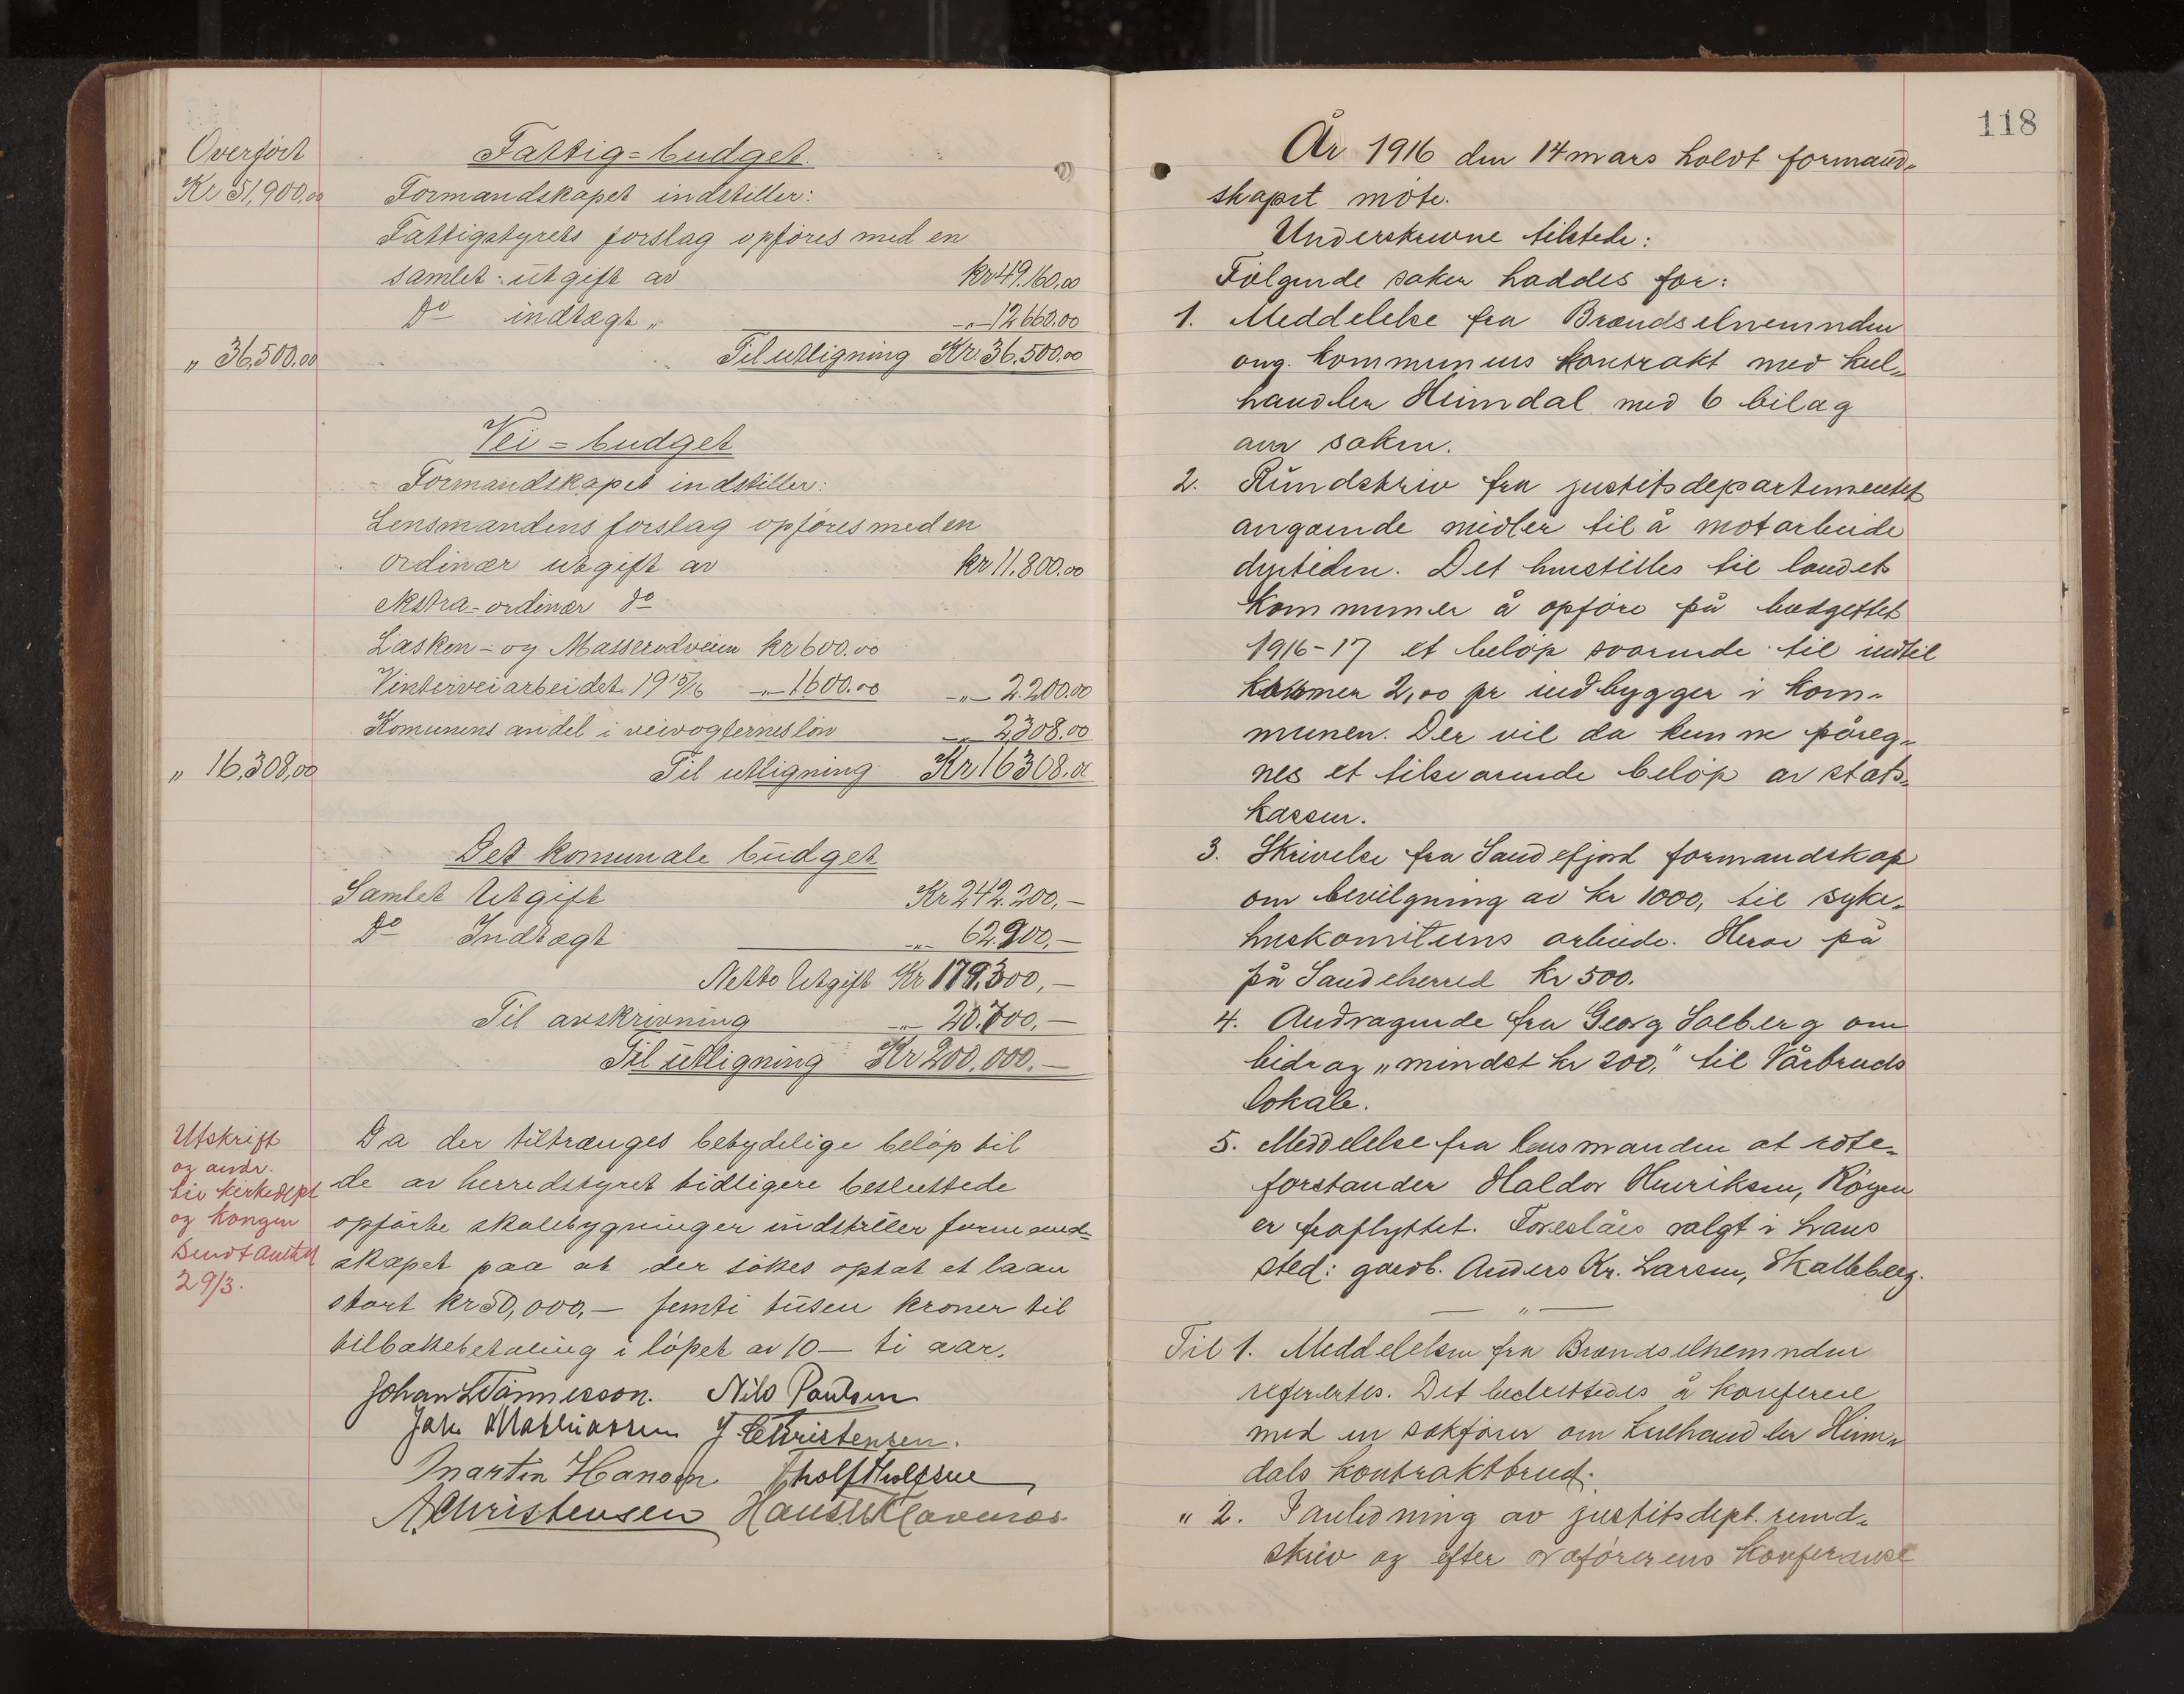 Overført
Kr 51,900,00
Fattig=budget.
Formandskapet indstiller:
Fattigstyrets forslag opføres med en
samlet utgift av kr 49.160,00
Do indtægt „ -„- 12660.00
„ 36,500.00
Til utligning Kr. 36.500.00
Vei=budget
Formandskapet indstiller:
Lensmandens forslag opføres med en
ordinær utgift av kr 11.800.00
ekstra-ordinær do
Lasken- og Masserødveien kr 600.00
Vinterveiarbeidet 1915/16 -„- 1600.00 -„- 2.200.00
Komunens andel i veivogternes løn -„- 2308.00
„ 16,308,00
Til utligning Kr 16308.00
Det komunale budget
Samlet Utgift Kr 242.200,-
Do Indtægt -„- 62900,-
Netto Utgift Kr 179.300,-
Til avskrivning -„- 20.700,-
Til utligning Kr 200.000.-
Utskrift
og andr.
til kirkedept
og kongen
sendt amtet
29/3.
Da der tiltrænges betydelige beløp til
de av herredstyret tidligere besluttede
opførte skolebygninger indstiller formand-
skapet paa at der søkes optat et laan
stort kr 50,000,- femti tusen kroner til
tilbakebetaling i løpet av 10- ti aar.
Johan L Tønnesson. Nils Paulsen
Jak. Mathiassen J Christensen.
Martin Hansen
A Christensen
118
År 1916 den 14 mars holdt formand-
skapet møte.
Underskrevne tilstede:
Følgende saker haddes for:
1. Meddelelse fra Brændselnemnden
ang. kommunens kontrakt med kul-
handler Heimdal med 6 bilag
saken.
2. Rundskriv fra justitsdepartementet
angående midler til å motarbeide
dyrtiden. Det henstilles til landets
kommuner å opføre på budgettet
1916-17 et beløp svarende til indtil
kroner 2,00 pr indbygger i kom-
munen. Der vil da kunne påreg-
nes et tilsvarende beløp av stats-
kassen.
3. Skrivelse fra Sandefjord formandskap
om bevilgning av kr 1000, til syke-
huskomiteens arbeide. Herav på
på Sandeherred kr 500.
4. Andragende fra Georg Solberg om
bidrag „mindst kr 200," til Vårbruds
lokale.
5. Meddelelse fra lensmanden at rote-
forstander Haldor Henriksen, Røyen
er fraflyttet. Foreslåes valgt i hans
sted: gaardb. Anders Kr. Larsen, Skalleberg.
— „ —
Til 1. Meddelelsen fra Brændselnemnden
refertes. Det besluttedes å konferere
med en sakfører om kulhandler Heim-
dals kontraktbrud.
„ 2. I anledning av justitsdept. rund-
skriv og efter ordførerens konferanse